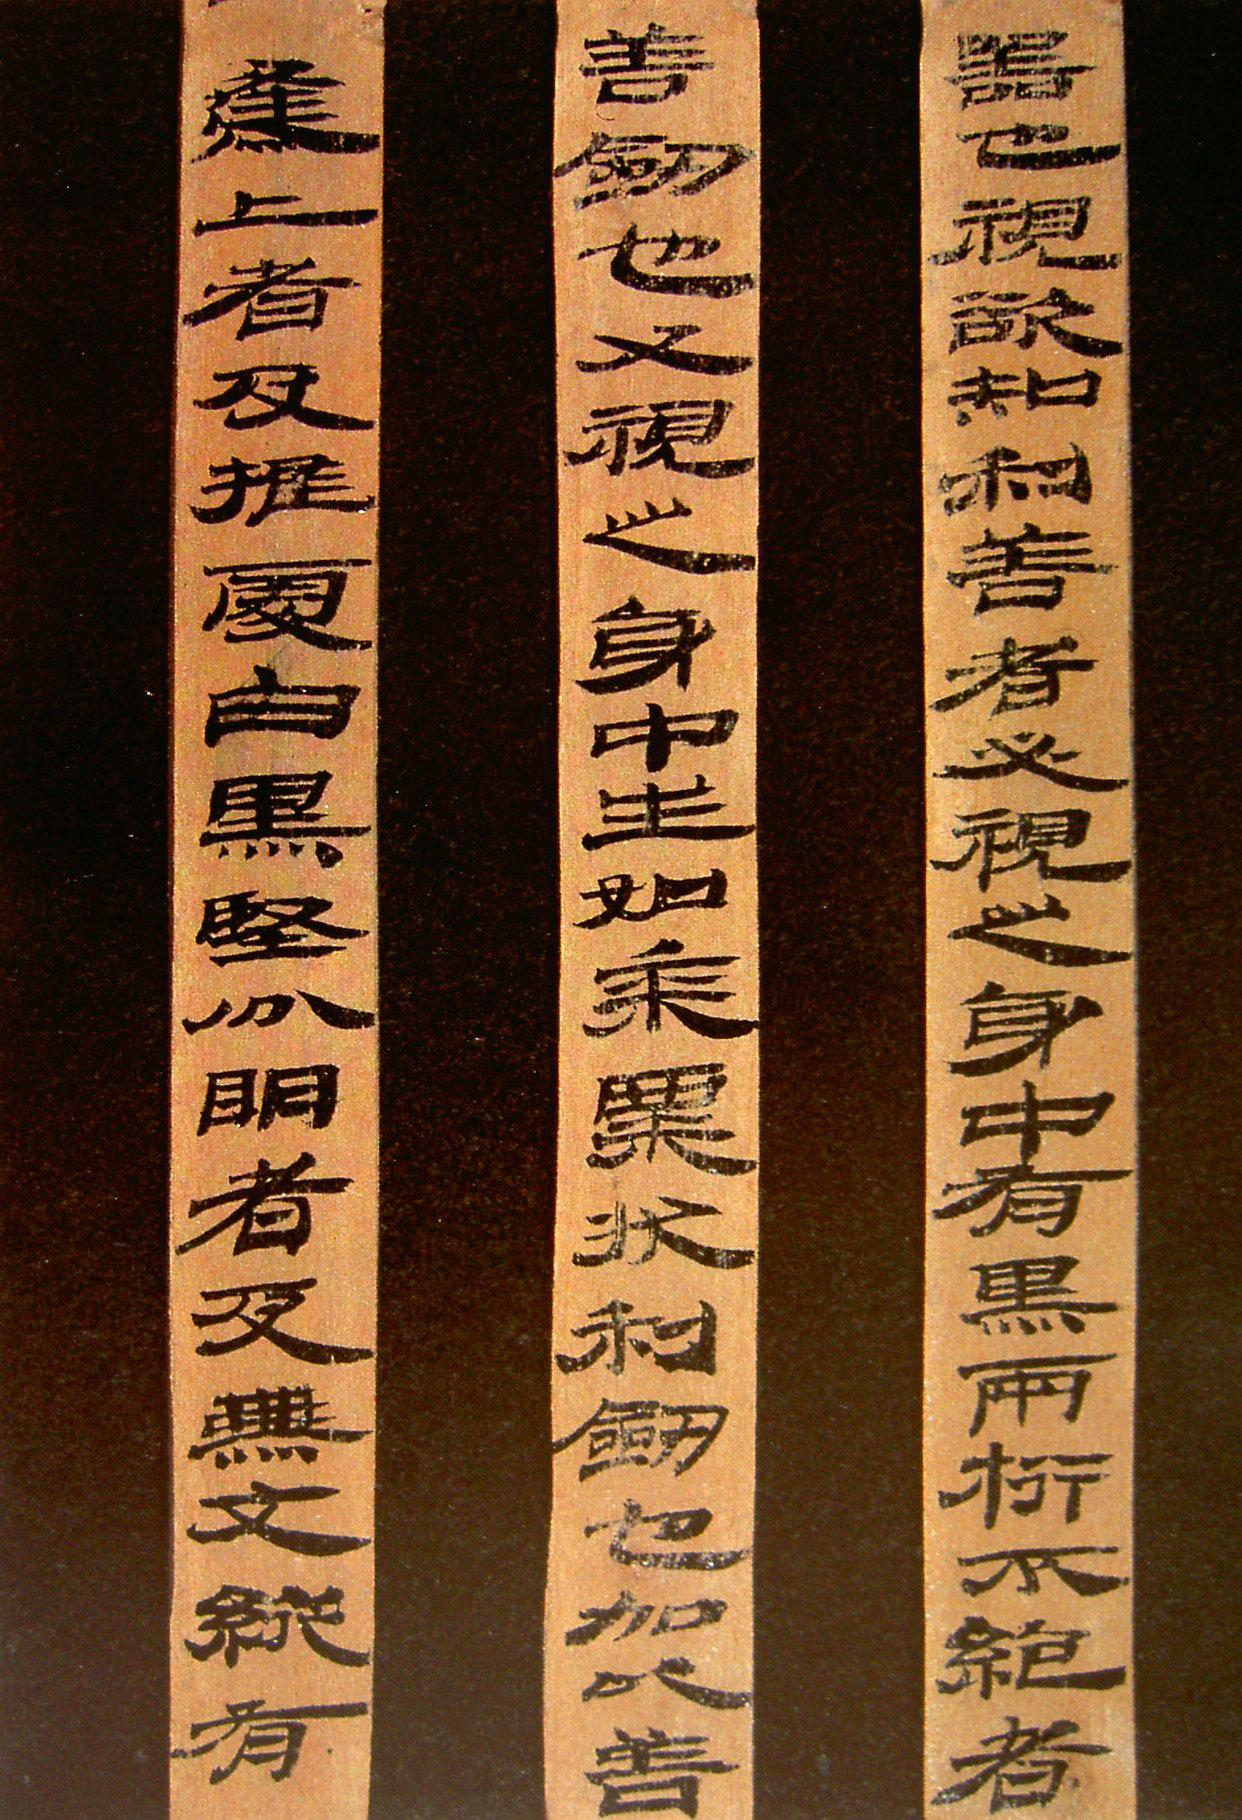 器也視欲知利善者必視之身中有黑兩桁不絕者
善劒也又視之身中生如黍粟狀利劒也加以善
㷭上者及推處白黑堅分明者及無文縱有